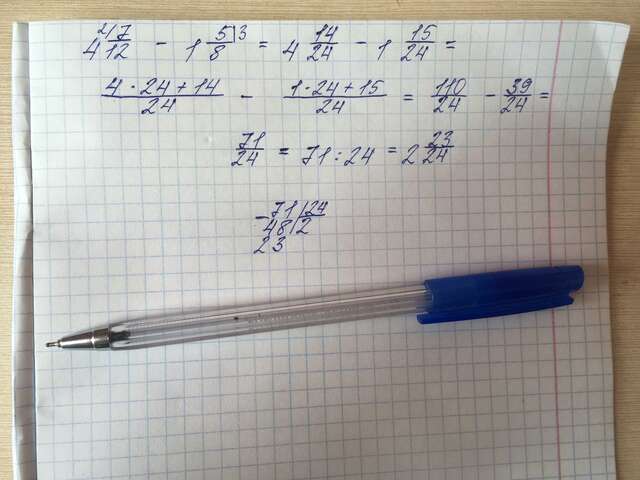 4 ²⁾7/12 - 1 5⁽³/8 = 4 14/24 - 1 15/24 =
4 · 24 + 14/24 - 1 · 24 + 15/24 = 110/24 - 39/24 =
71/24 = 71 : 24 = 2 23/24
- 71 | 24
48 | 2
23